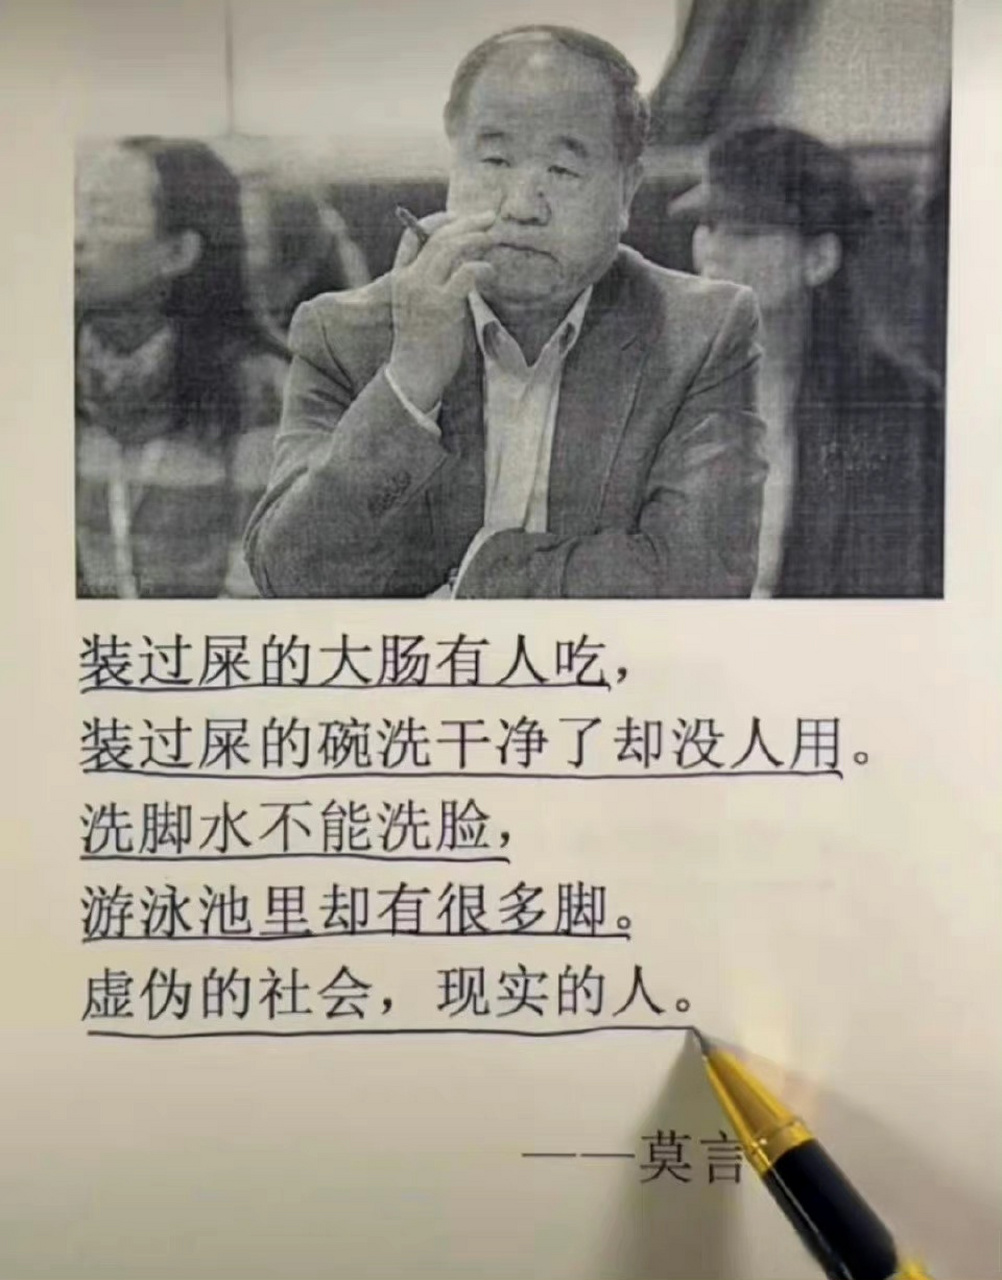 装过屎的大肠有人吃，
装过屎的碗洗干净了却没人用。
洗脚水不能洗脸，
游泳池里却有很多脚。
虚伪的社会，现实的人。
——莫言